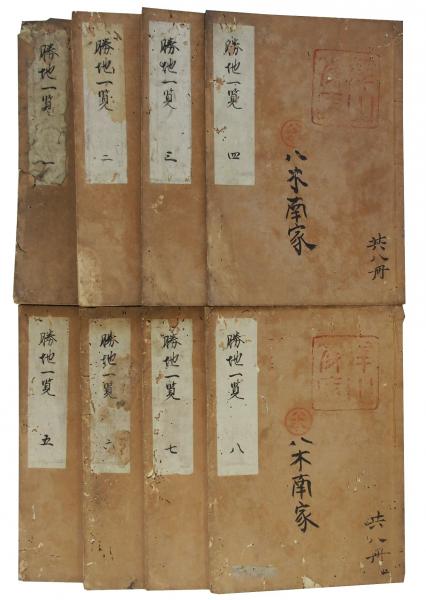 勝地一覧 一
勝地一覧 二
勝地一覧 三
勝地一覧 四
八木南家
共八冊
勝地一覧 五
勝地一覧 六
勝地一覧 七
勝地一覧 八
八木南家
共八冊